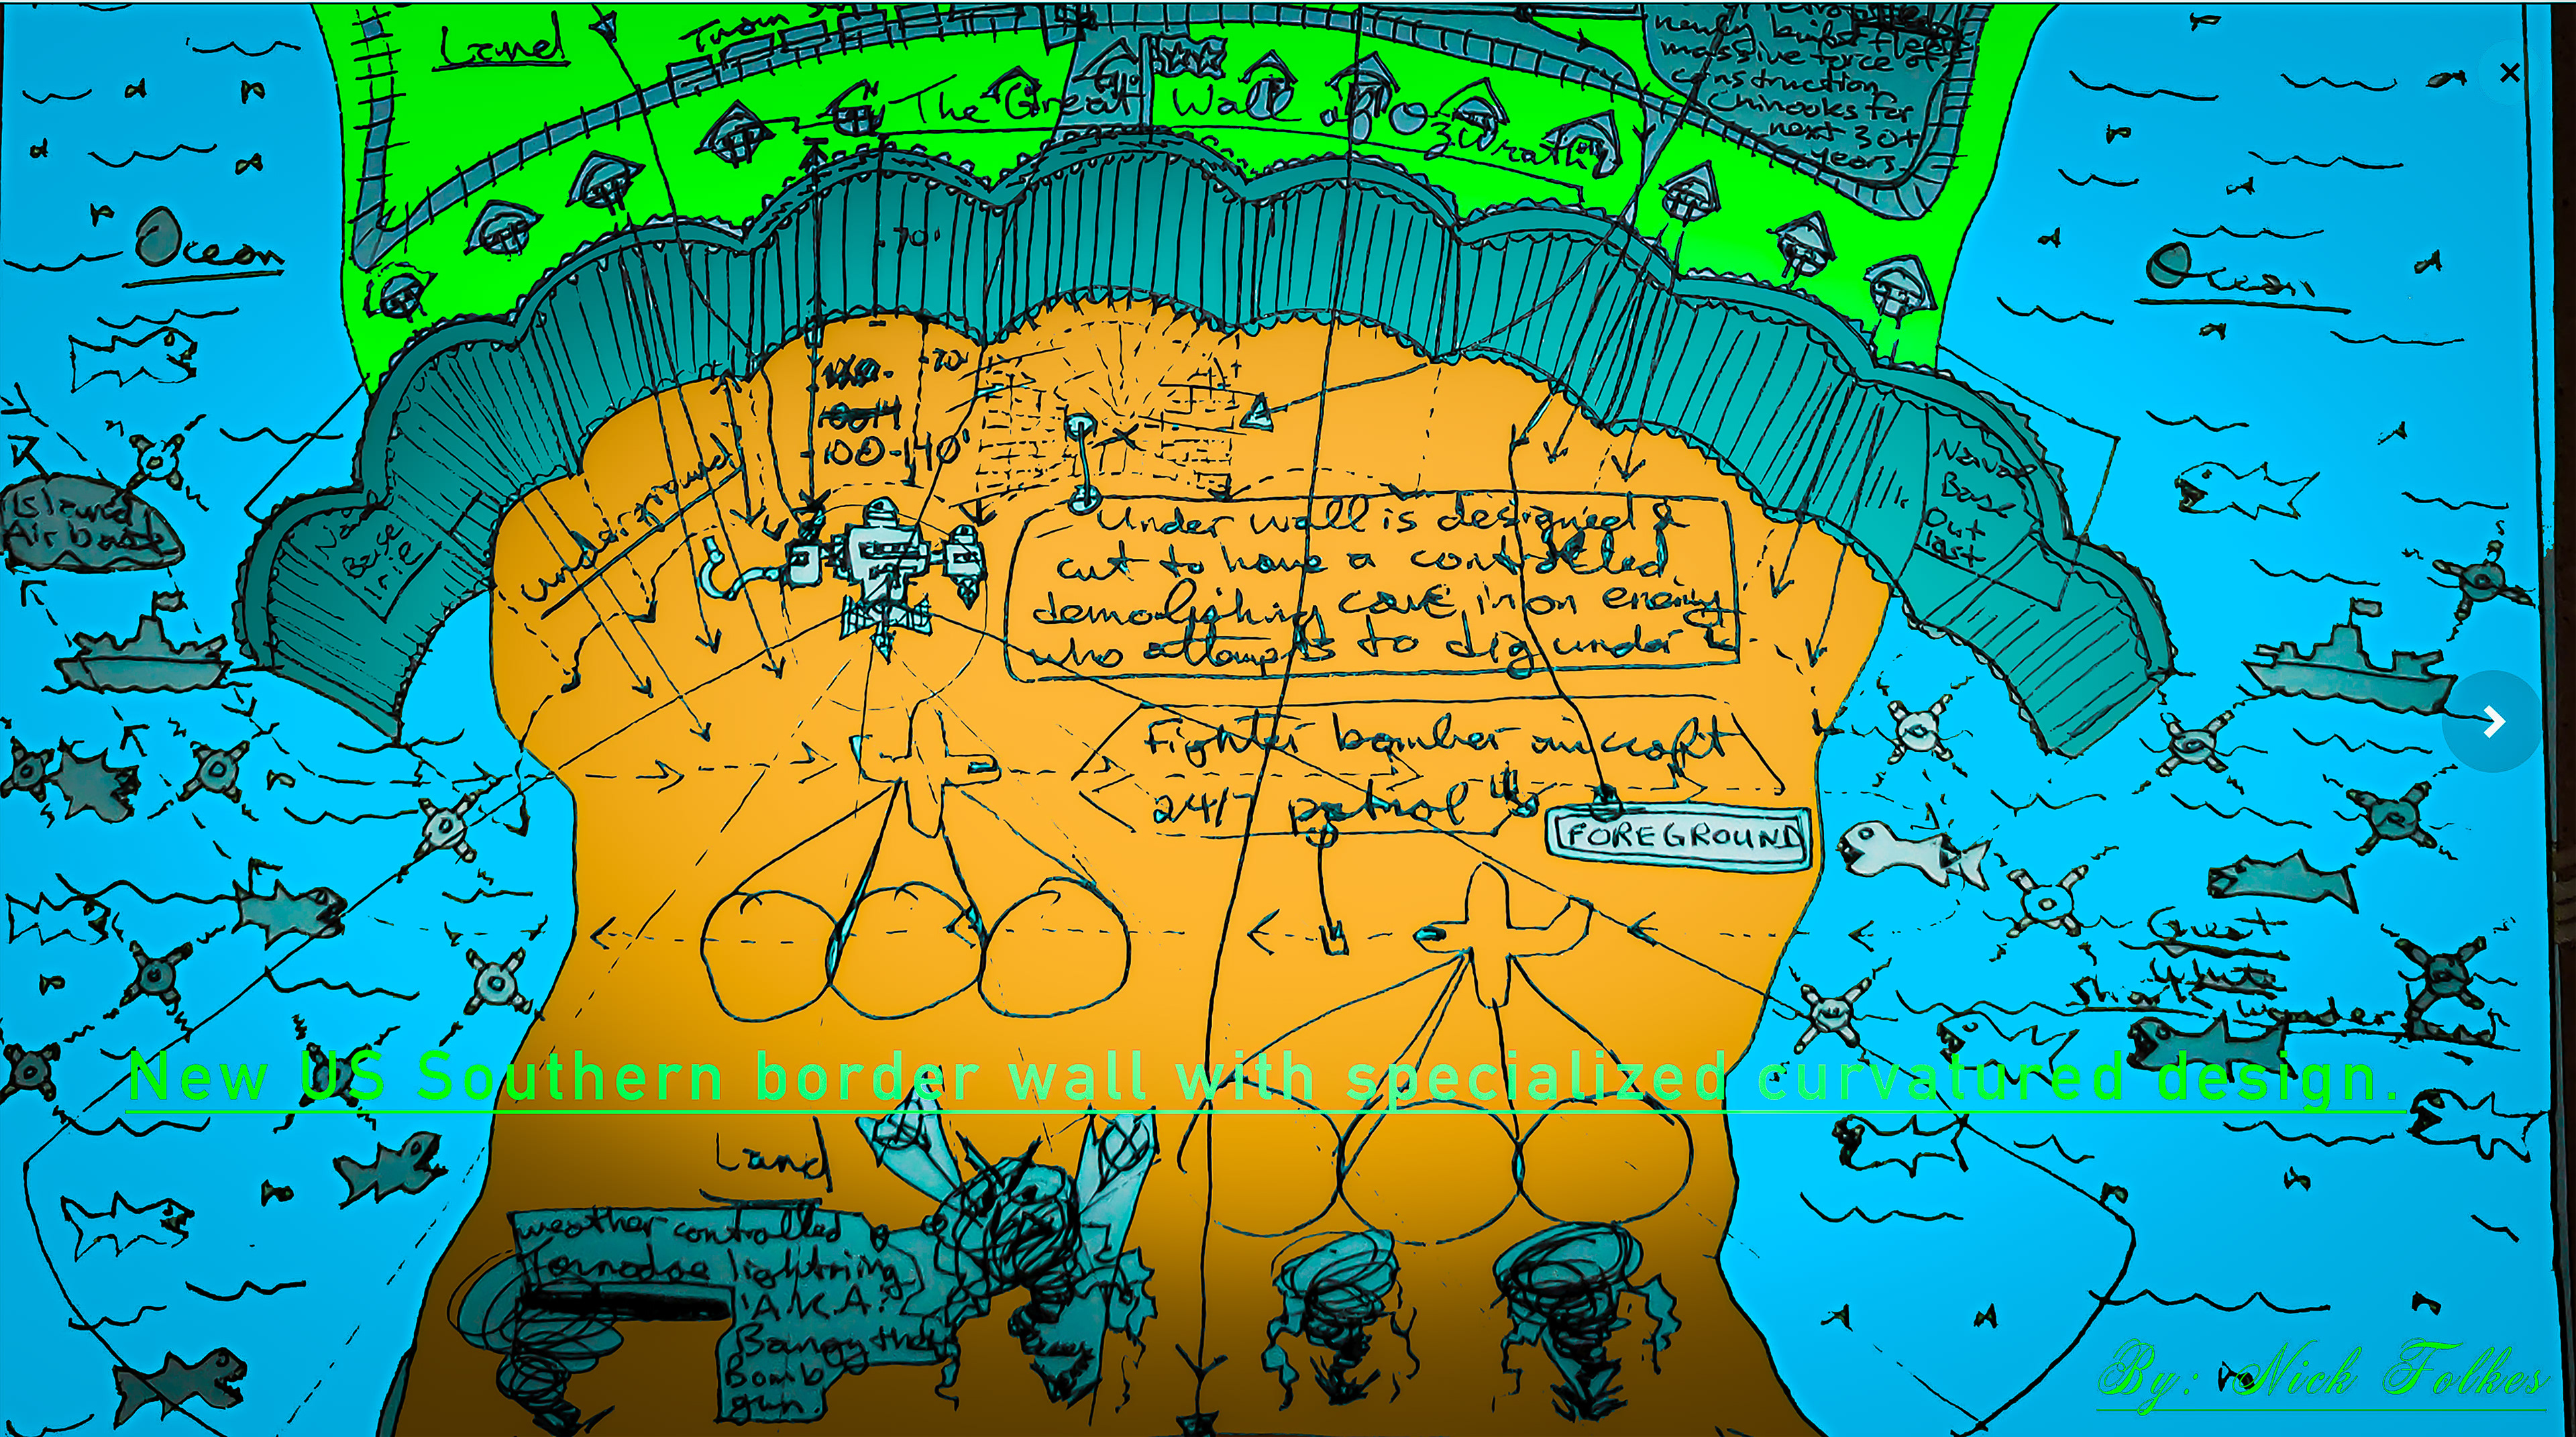 Land
Train
newly built fleet
massive force of
construction
Chinooks for
next 30+
years.
The Great Wall of Ozwrath
Ocean
Ocean
-70'
-70'
100-140'
underground
Island
Air base
Base
Naval
Base
Out
last
Under wall is designed &
cut to have a controlled
demolishing cave in on enemy
who attempts to dig under it
Fighter bomber aircraft
24/7 patrol
FOREGROUND
Great
White
Shark
wonder land
New US Southern border wall with specialized curvatured design.
Land
weather controlled
Tornadoe lightning
"A.K.A."
Bomb
gun.
By: Nick Folkes